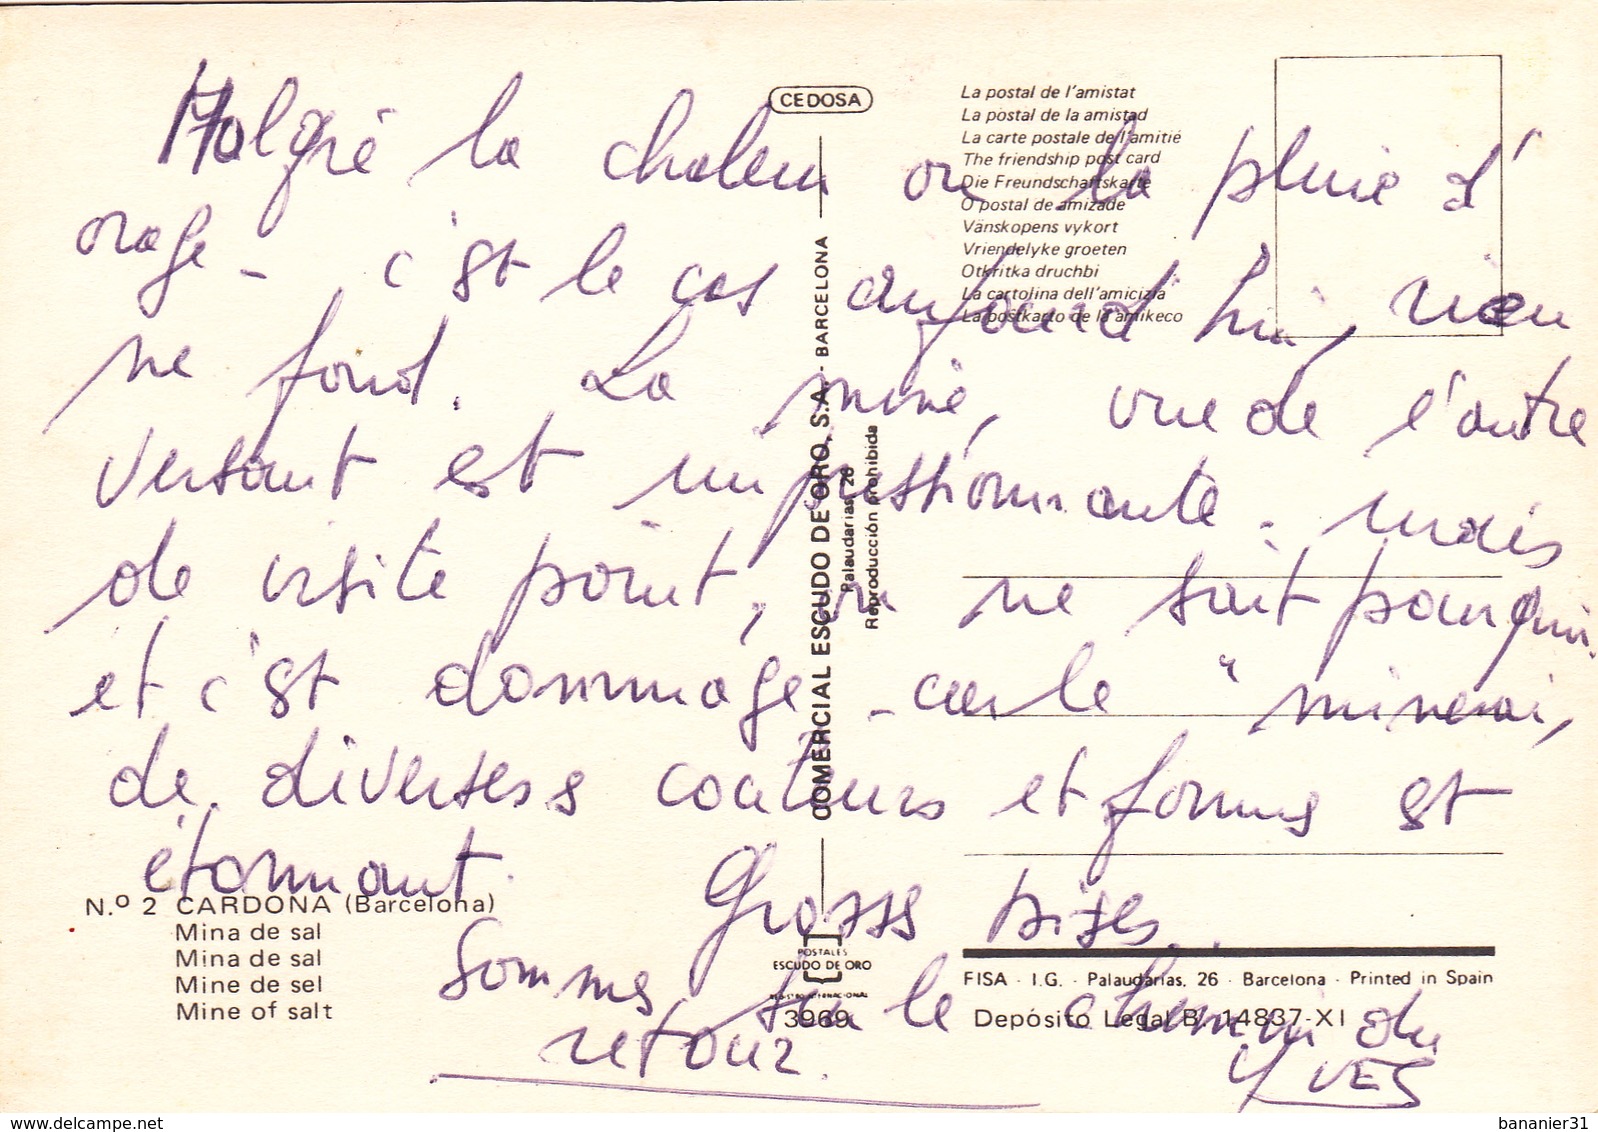 CEDOSA
La postal de l'amistat
La postal de la amistad
La carte postale de l'amitié
The friendship post card
Die Freundschaftskarte
O postal de amizade
Vänskopens vykort
Vriendelyke groeten
Otkritka druchbi
La cartolina dell'amicizia
La postkarto de la amikeco
Malgré la chaleur ou la pluie d'
orage - c'est le cas aujourd'hui, rien
ne fond. La mine, vue de l'autre
versant est impressionnante. mais
de visite point, on ne sait pourquoi.
et c'est dommage - car le "minerai,
de diverses couleurs et formes est
étonnant. Grosses bises..
Sommes sur le chemin du
retour. YVES
COMERCIAL ESCUDO DE ORO, S.A. - BARCELONA
Palaudarias, 26
Reproducción prohibida
N.º 2 CARDONA (Barcelona)
Mina de sal
Mina de sal
Mine de sel
Mine of salt
POSTALES
ESCUDO DE ORO
REGISTRO INTERNACIONAL
3969
FISA - I.G. - Palaudarias, 26 - Barcelona - Printed in Spain
Depósito Legal B. 14837-XI
bananier31